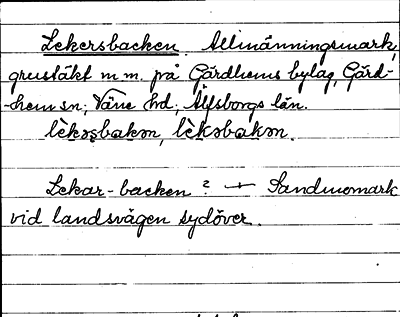 Lekersbacken. Allmänningsmark,
grustäkt m m. på Gärdhems bylag, Gärd-
-hem sn; Väne hd; Älfsborgs län.
lèkərsbakən, lèkərsbakən.
Lekar-backen? + Sandmomark
vid landsvägen sydöver.